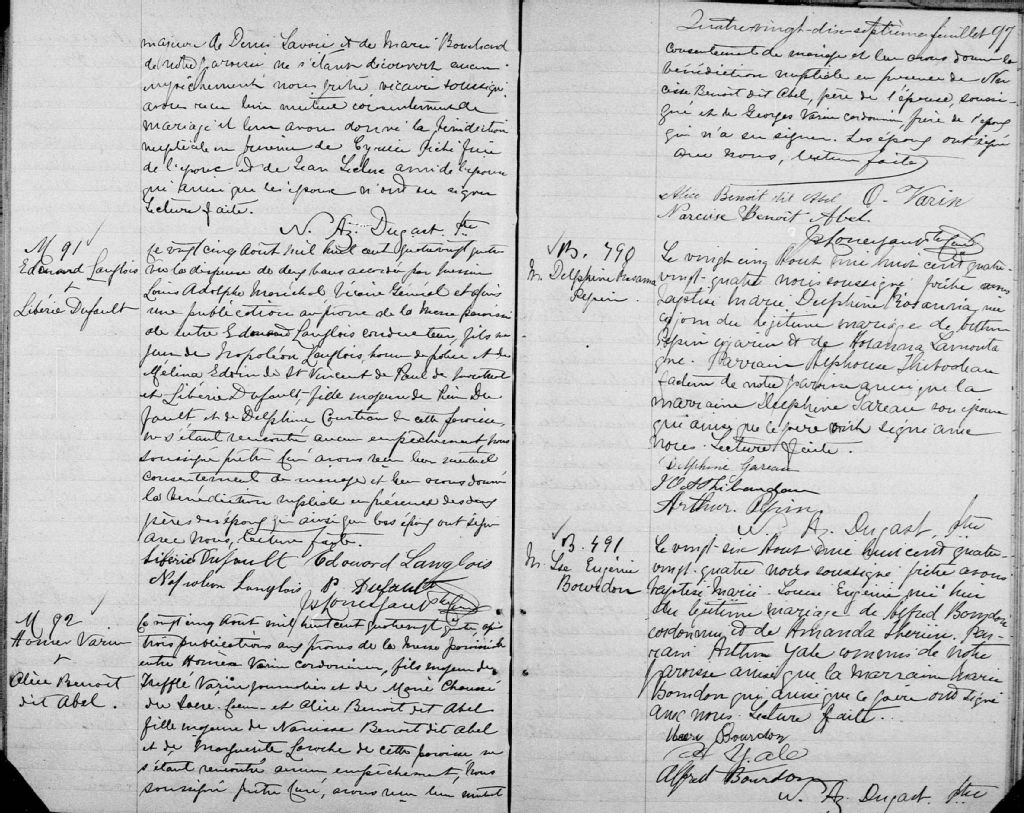 majeure de Denis Lavoie et de Marie Bouchard
de notre paroisse ne s'étant découvert aucun
empêchement nous prêtre vicaire soussigné
avons reçu leur mutuel consentement de
mariage et leur avons donné la bénédiction
nuptiale en présence de Cyrille frère
de l'épouse et de Jean Leclerc ami de l'époux
qui ainsi que les époux n'ont su signer
Lecture faite.
N. Az. Dugast. Ptre
M 91
Edouard Langlois
+
Libérie Dufault
Le vingt cinq Août mil huit cent quatrevingt quatre
vu la dispense de deux bans accordée par Messire
Louis Adolphe Maréchal Vicaire Général et après
une publication au prône de la Messe paroissi
ale entre Edouard Langlois conducteur, fils ma
jeur de Napoléon Langlois, homme de police et de
Mélina de St Vincent de Paul de Montreal
et Libérie Dufault fille majeure de Pierre Du
fault et de Delphine de cette paroisse,
ne s'étant rencontré aucun empêchement, Nous
soussigné prêtre Curé avons reçu leur mutuel
consentement de mariage et leur avons donné
la bénédiction nuptiale en présence des deux
pères des époux qui ainsi que les époux ont signé
avec nous, lecture faite.
Libérie Dufault Edouard Langlois
Napoléon Langlois P. Dufault
M 92
Homer Varin
+
Alice Benoit
dit Abel.
Le vingt cinq Août mil huit cent quatrevingt quatre, après
trois publications aux prônes de la Messe paroissiale
entre Homer Varin cordonnier, fils majeur de
Trefflé Varin journalier et de Marie
du lieu et Alice Benoit dit Abel
fille majeure de Narcisse Benoit dit Abel
et de Marguerite Laroche de cette paroisse ne
s'étant rencontré aucun empêchement, Nous
soussigné prêtre Curé, avons reçu leur mutuel
Quatre-vingt-dix-septième feuillet 97
consentement de mariage et leur avons donné la
bénédiction nuptiale en présence de Nar
cisse Benoit dit Abel, père de l'épouse, soussi
gné et de Georges Varin cordonnier frère de l'époux
qui n'a su signer. Les époux ont signé
avec nous, lecture faite
Alice Benoit dit Abel O. Varin
Narcisse Benoit Abel
B. 490
M. Delphine Rosanna
Pepin.
Le vingt cinq Aout mil huit cent quatre
vingt-quatre nous soussigné prêtre avons
baptisé Marie Delphine Rosanna, née
ce jour du légitime mariage de Arthur
Pepin cigarier et de Rosanna Lamonta
gne. Parrain Alphonse Thibodeau
facteur de notre paroisse ainsi que la
marraine Delphine Gareau son épouse
qui ainsi que le père ont signé avec
nous. Lecture faite.
Delphine Gareau
Thibaudeau
Arthur. Pepin
N. Az. Dugast, Ptre
B. 491
M. Lse Eugénie
Bourdon
Le vingt-six Aout mil huit cent quatre-
vingt-quatre nous soussigné prêtre avons
baptisé Marie-Louise Eugénie née hier
du légitime mariage de Alfred Bourdon
cordonnier et de Amanda Therien. Par-
rain Arthur Yale commis de notre
paroisse ainsi que la marraine Marie
Bourdon qui ainsi que le père ont signé
avec nous. Lecture faite.
Bourdon
A Yale
Alfred Bourdon
N. Az. Dugast. Ptre